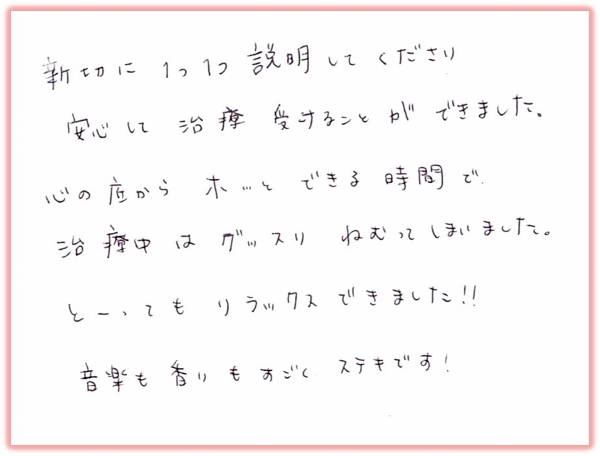 新切に 1つ1つ 説明してくださり
安心して 治療 受けることが できました。
心の底から ホッと できる 時間で
治療中は グッスリ ねむってしまいました。
とーっても リラックスできました!!
音楽も 香りも すごく ステキです!